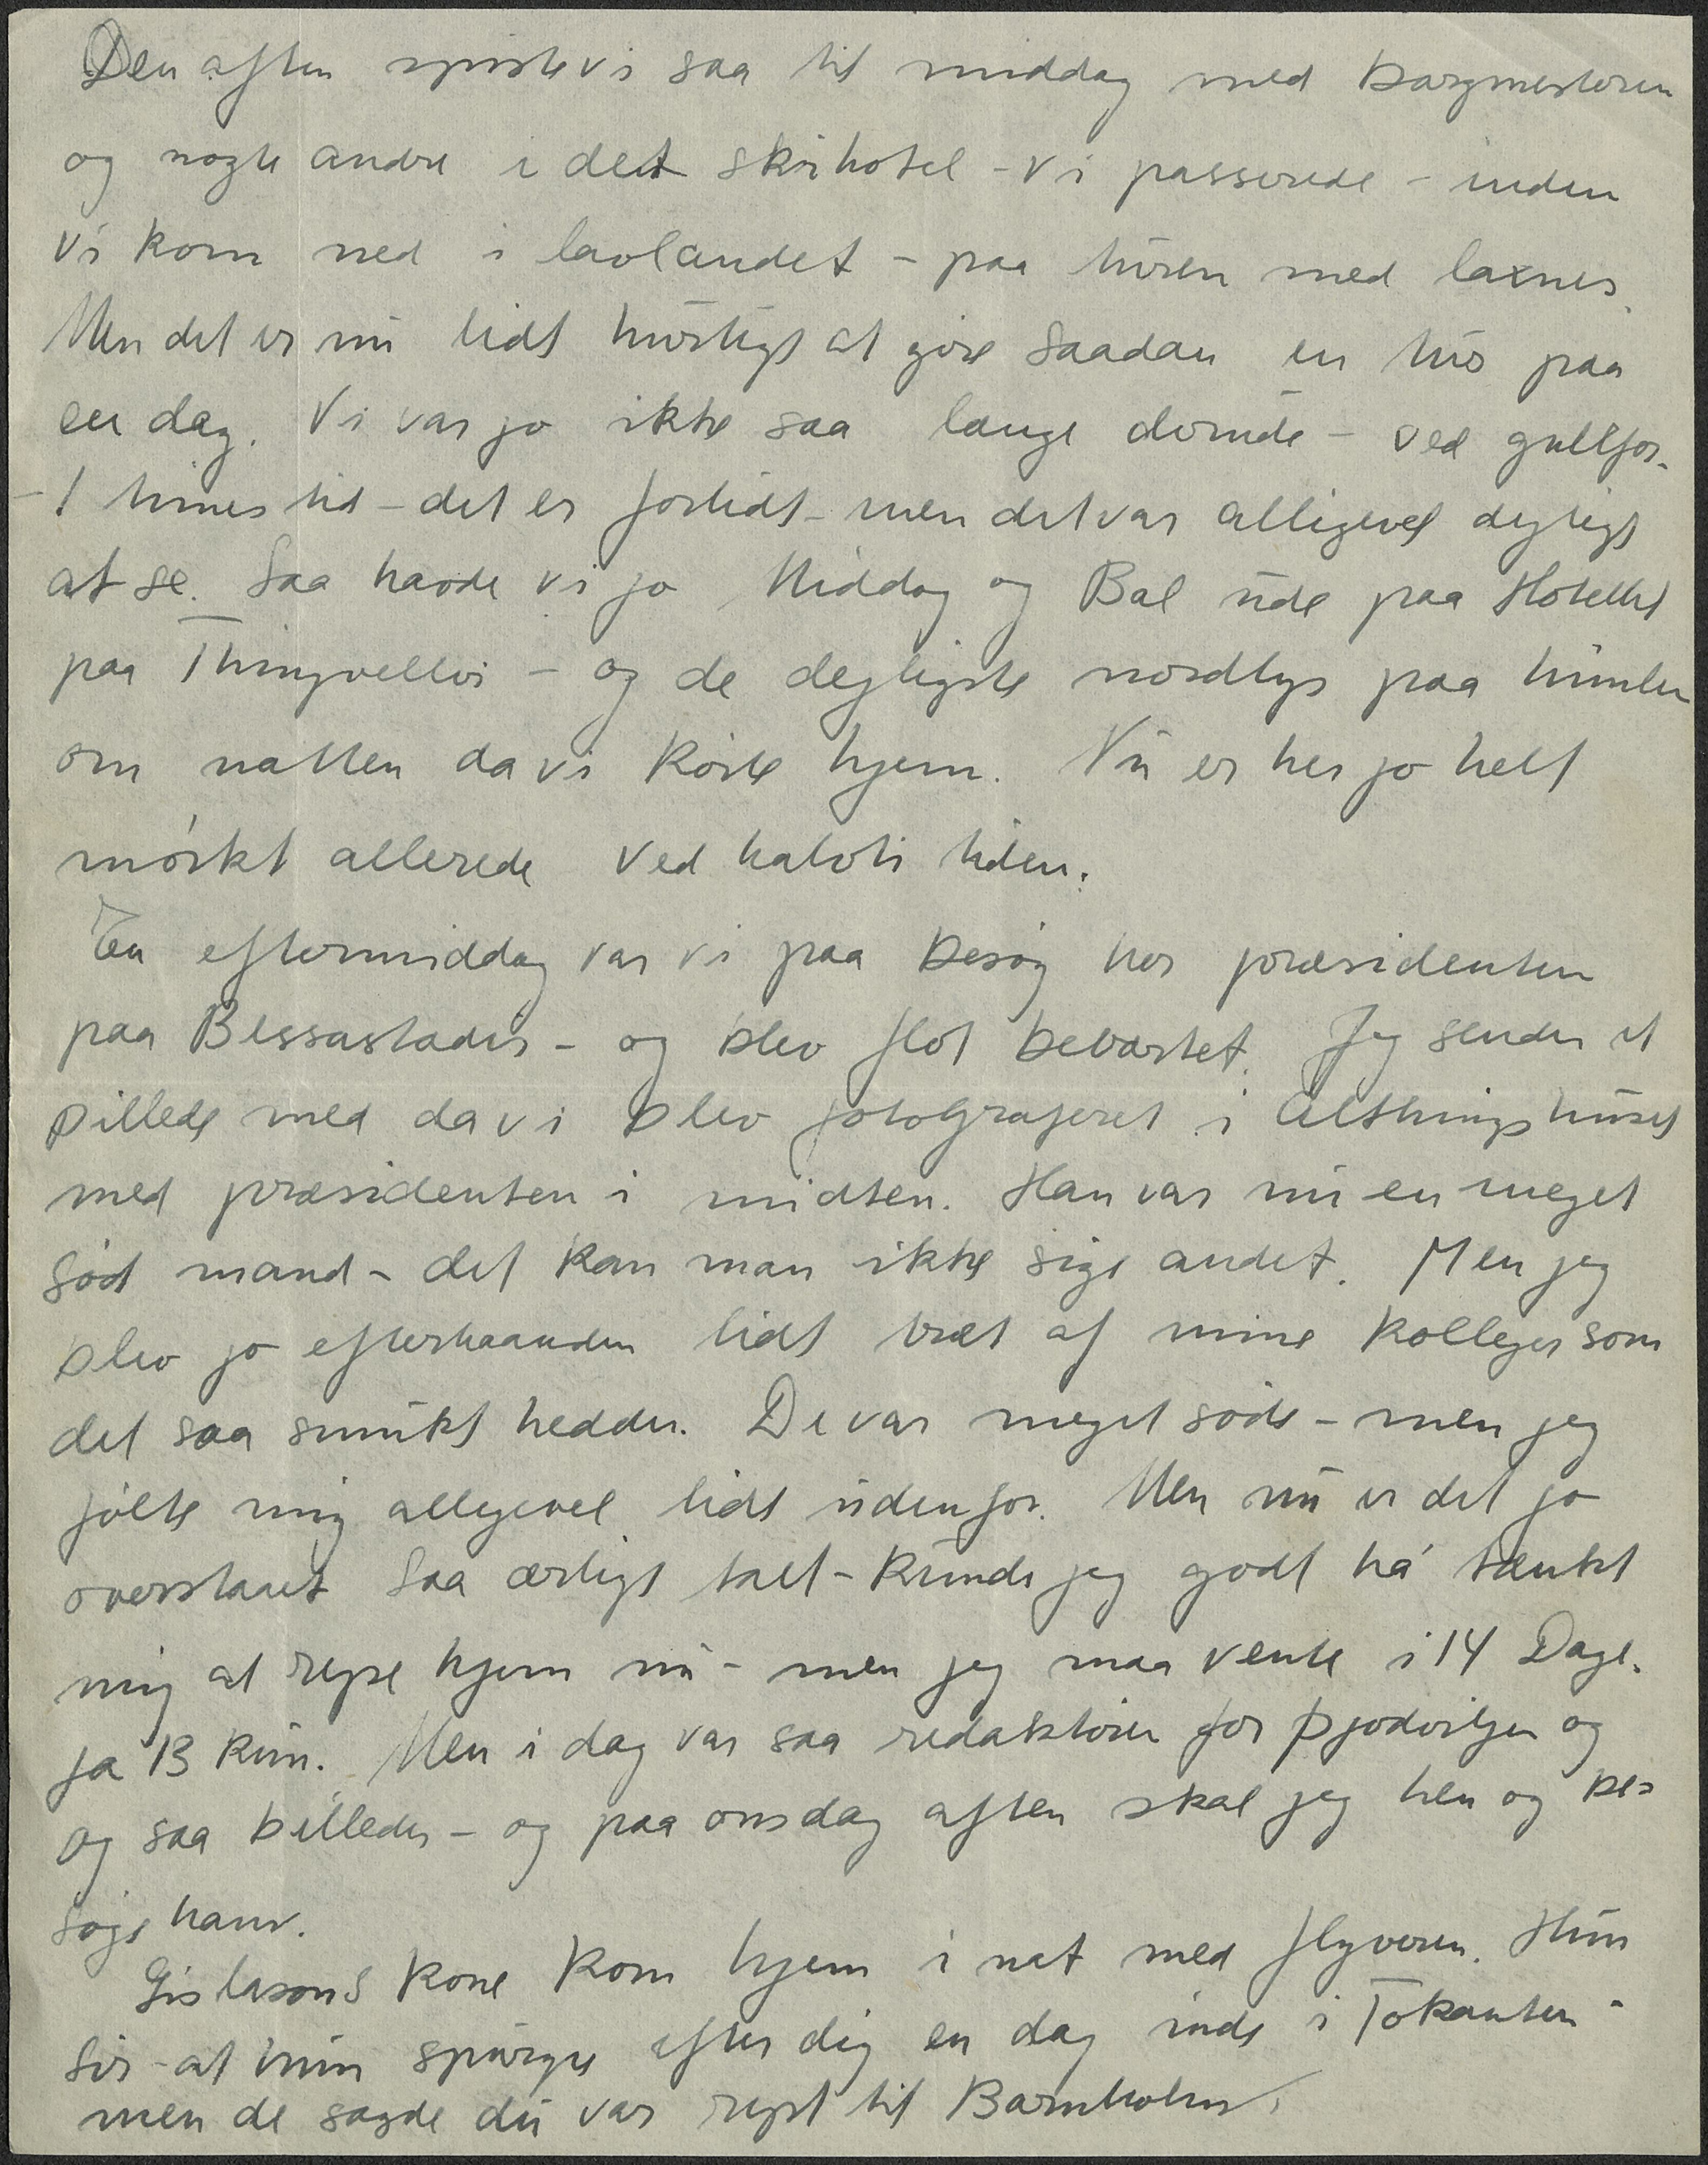 Den aften spiste vi saa til middag med borgmesteren
og nogle andre i det skihotel - vi passerede - inden
vi kom ned i lavlandet - paa turen med laxnes.
Men det er nu lidt hurtigt at göre saadan en tur paa
en dag. Vi var jo ikke saa længe derude - ved gullfos.
- 1 times tid - det er forlidt - men det var alligevel dejligt
at se. Saa havde vi jo Middag og Bal ude paa Hotellet
paa Thingvellir - og de dejligste nordlys paa himlen
om natten da vi körte hjem. Nu er her jo helt
mörkt allerede ved halvti tiden.
En eftermiddag var vi paa besög hos præsidenten
paa Bessastader - og blev flot beværtet. Jeg sender et
billede med da vi blev fotograferet i Althingshuset
med præsidenten i midten. Han var nu en meget
söd mand - det kan man ikke sige andet. Men jeg
blev jo efterhaanden lidt træt af mine kolleger som
det saa smukt hedder. De var meget söde - men jeg
fölte mig alligevel lidt udenfor. Men nu er det jo
overstaaet Saa ærligt talt - kunde jeg godt ha' tænkt
mig at rejse hjem nu - men jeg maa vente i 14 Dage.
ja 13 kun. Men i dag var saa redaktören for þjodviljen og
og saa billeder - og paa onsdag aften skal jeg hen og be-
söge ham.
Gislasons kone kom hjem i nat med flyveren. Hun
sir - at hun spurgte efter dig en dag inde i Tokanten -
men de sagde du var rejst til Bornholm.